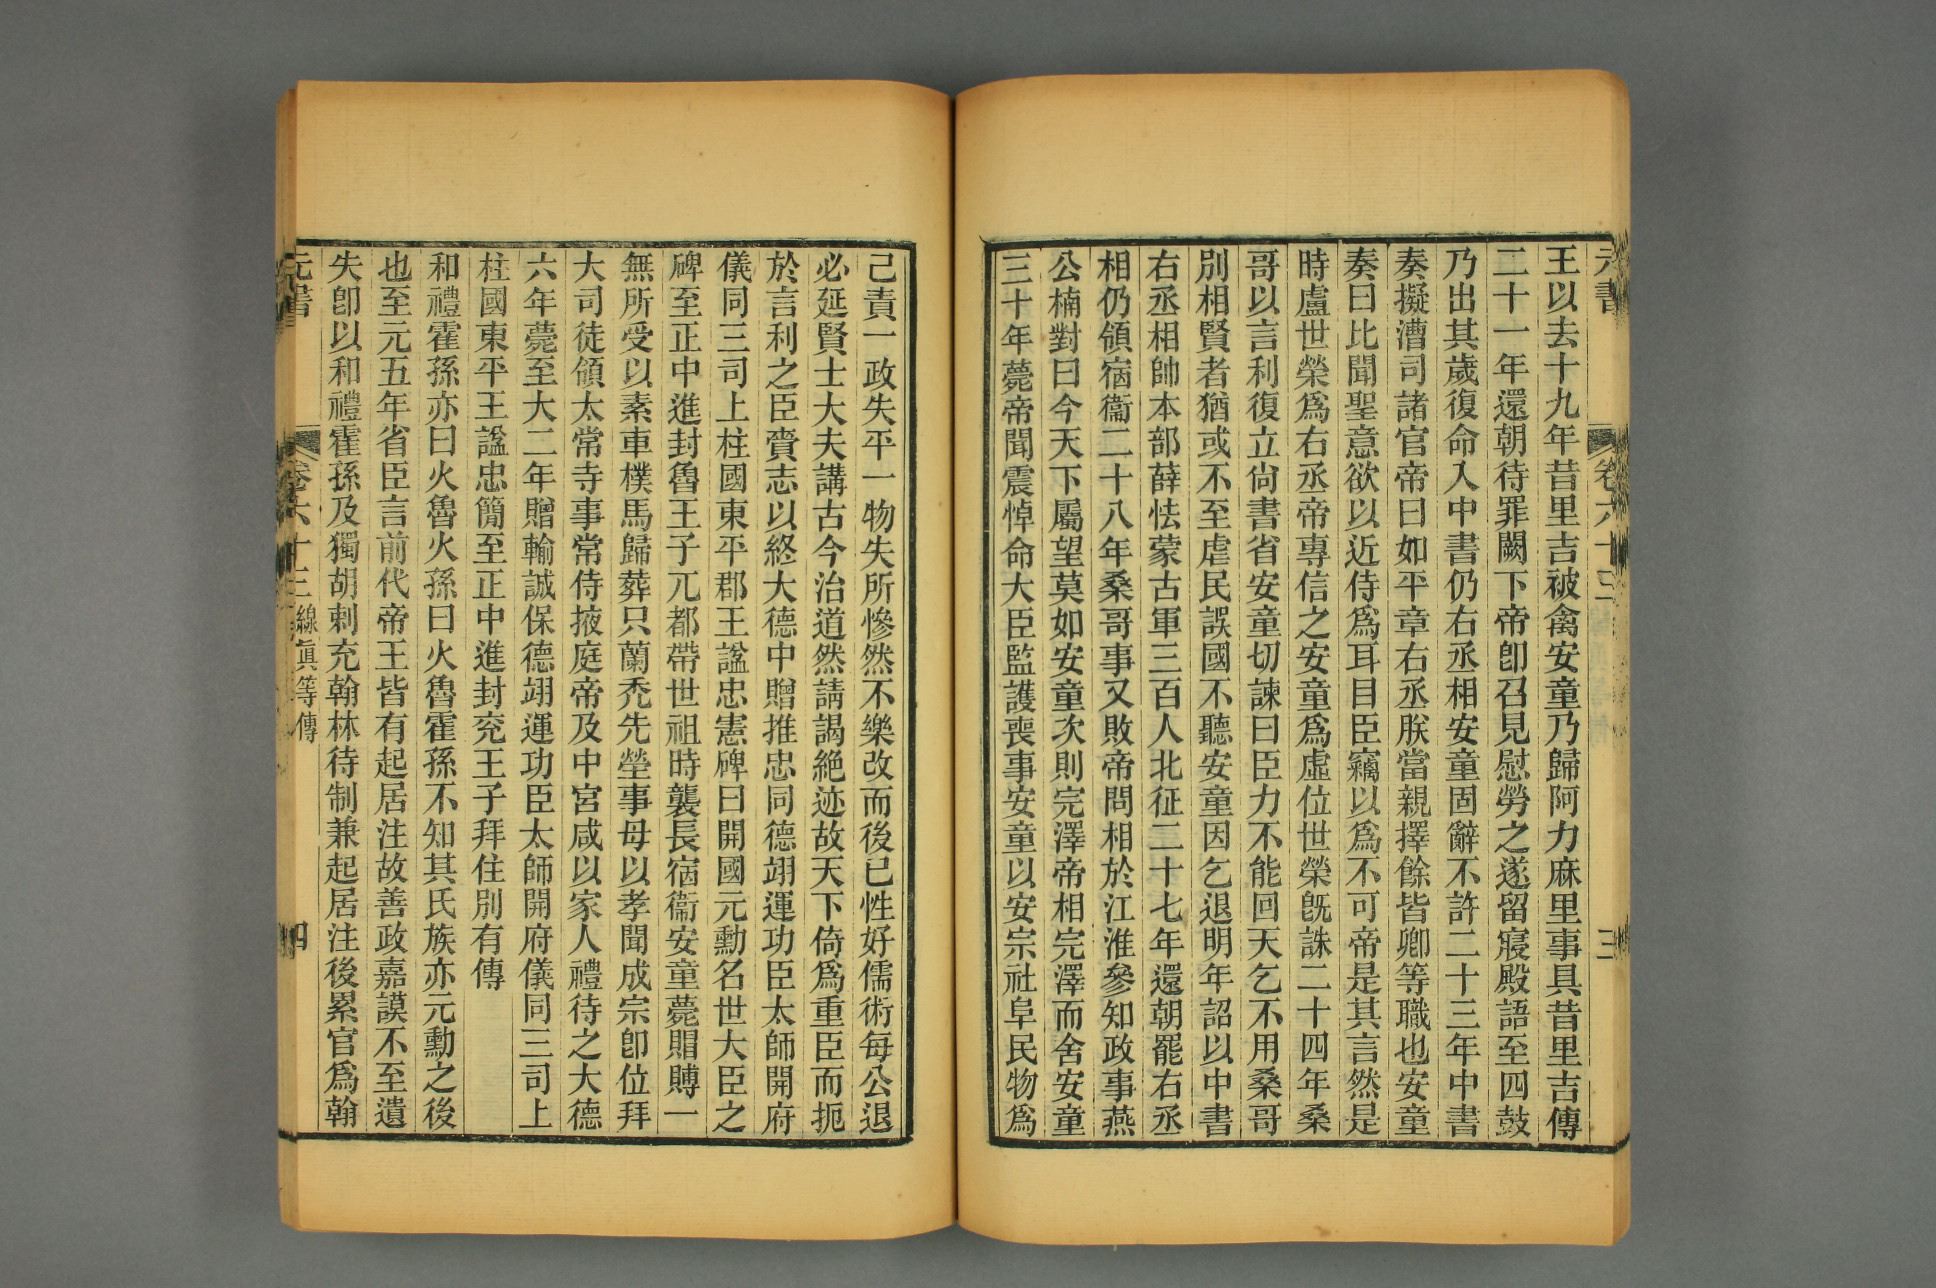 元書
卷六十三
三
王以去十九年昔里吉被禽安童乃歸阿力麻里事具昔里吉傳
二十一年還朝待罪闕下帝卽召見慰勞之遂留寢殿語至四鼓
乃出其歲復命入中書仍右丞相安童固辭不許二十三年中書
奏擬漕司諸官帝曰如平章右丞朕當親擇餘皆卿等職也安童
奏曰比聞聖意欲以近侍爲耳目臣竊以爲不可帝是其言然是
時盧世榮爲右丞帝專信之安童爲虛位世榮旣誅二十四年桑
哥以言利復立尙書省安童切諫曰臣力不能回天乞不用桑哥
別相賢者猶或不至虐民誤國不聽安童因乞退明年詔以中書
右丞相帥本部薛怯蒙古軍三百人北征二十七年還朝罷右丞
相仍領宿衞二十八年桑哥事又敗帝問相於江淮參知政事燕
公楠對曰今天下屬望莫如安童次則完澤帝相完澤而舍安童
三十年薨帝聞震悼命大臣監護喪事安童以安宗社阜民物爲
己責一政失平一物失所慘然不樂改而後已性好儒術每公退
必延賢士大夫講古今治道然請謁絕迹故天下倚爲重臣而扼
於言利之臣賫志以終大德中贈推忠同德翊運功臣太師開府
儀同三司上柱國東平郡王諡忠憲碑曰開國元勳名世大臣之
碑至正中進封魯王子兀都帶世祖時襲長宿衞安童薨賵賻一
無所受以素車樸馬歸葬只蘭禿先塋事母以孝聞成宗卽位拜
大司徒領太常寺事常侍掖庭帝及中宮咸以家人禮待之大德
六年薨至大二年贈輸誠保德翊運功臣太師開府儀同三司上
柱國東平王諡忠簡至正中進封兖王子拜住別有傳
和禮霍孫亦曰火魯火孫曰火魯霍孫不知其氏族亦元勳之後
也至元五年省臣言前代帝王皆有起居注故善政嘉謨不至遺
失卽以和禮霍孫及獨胡剌充翰林待制兼起居注後累官爲翰
元書
卷六十三
線眞等傳
四